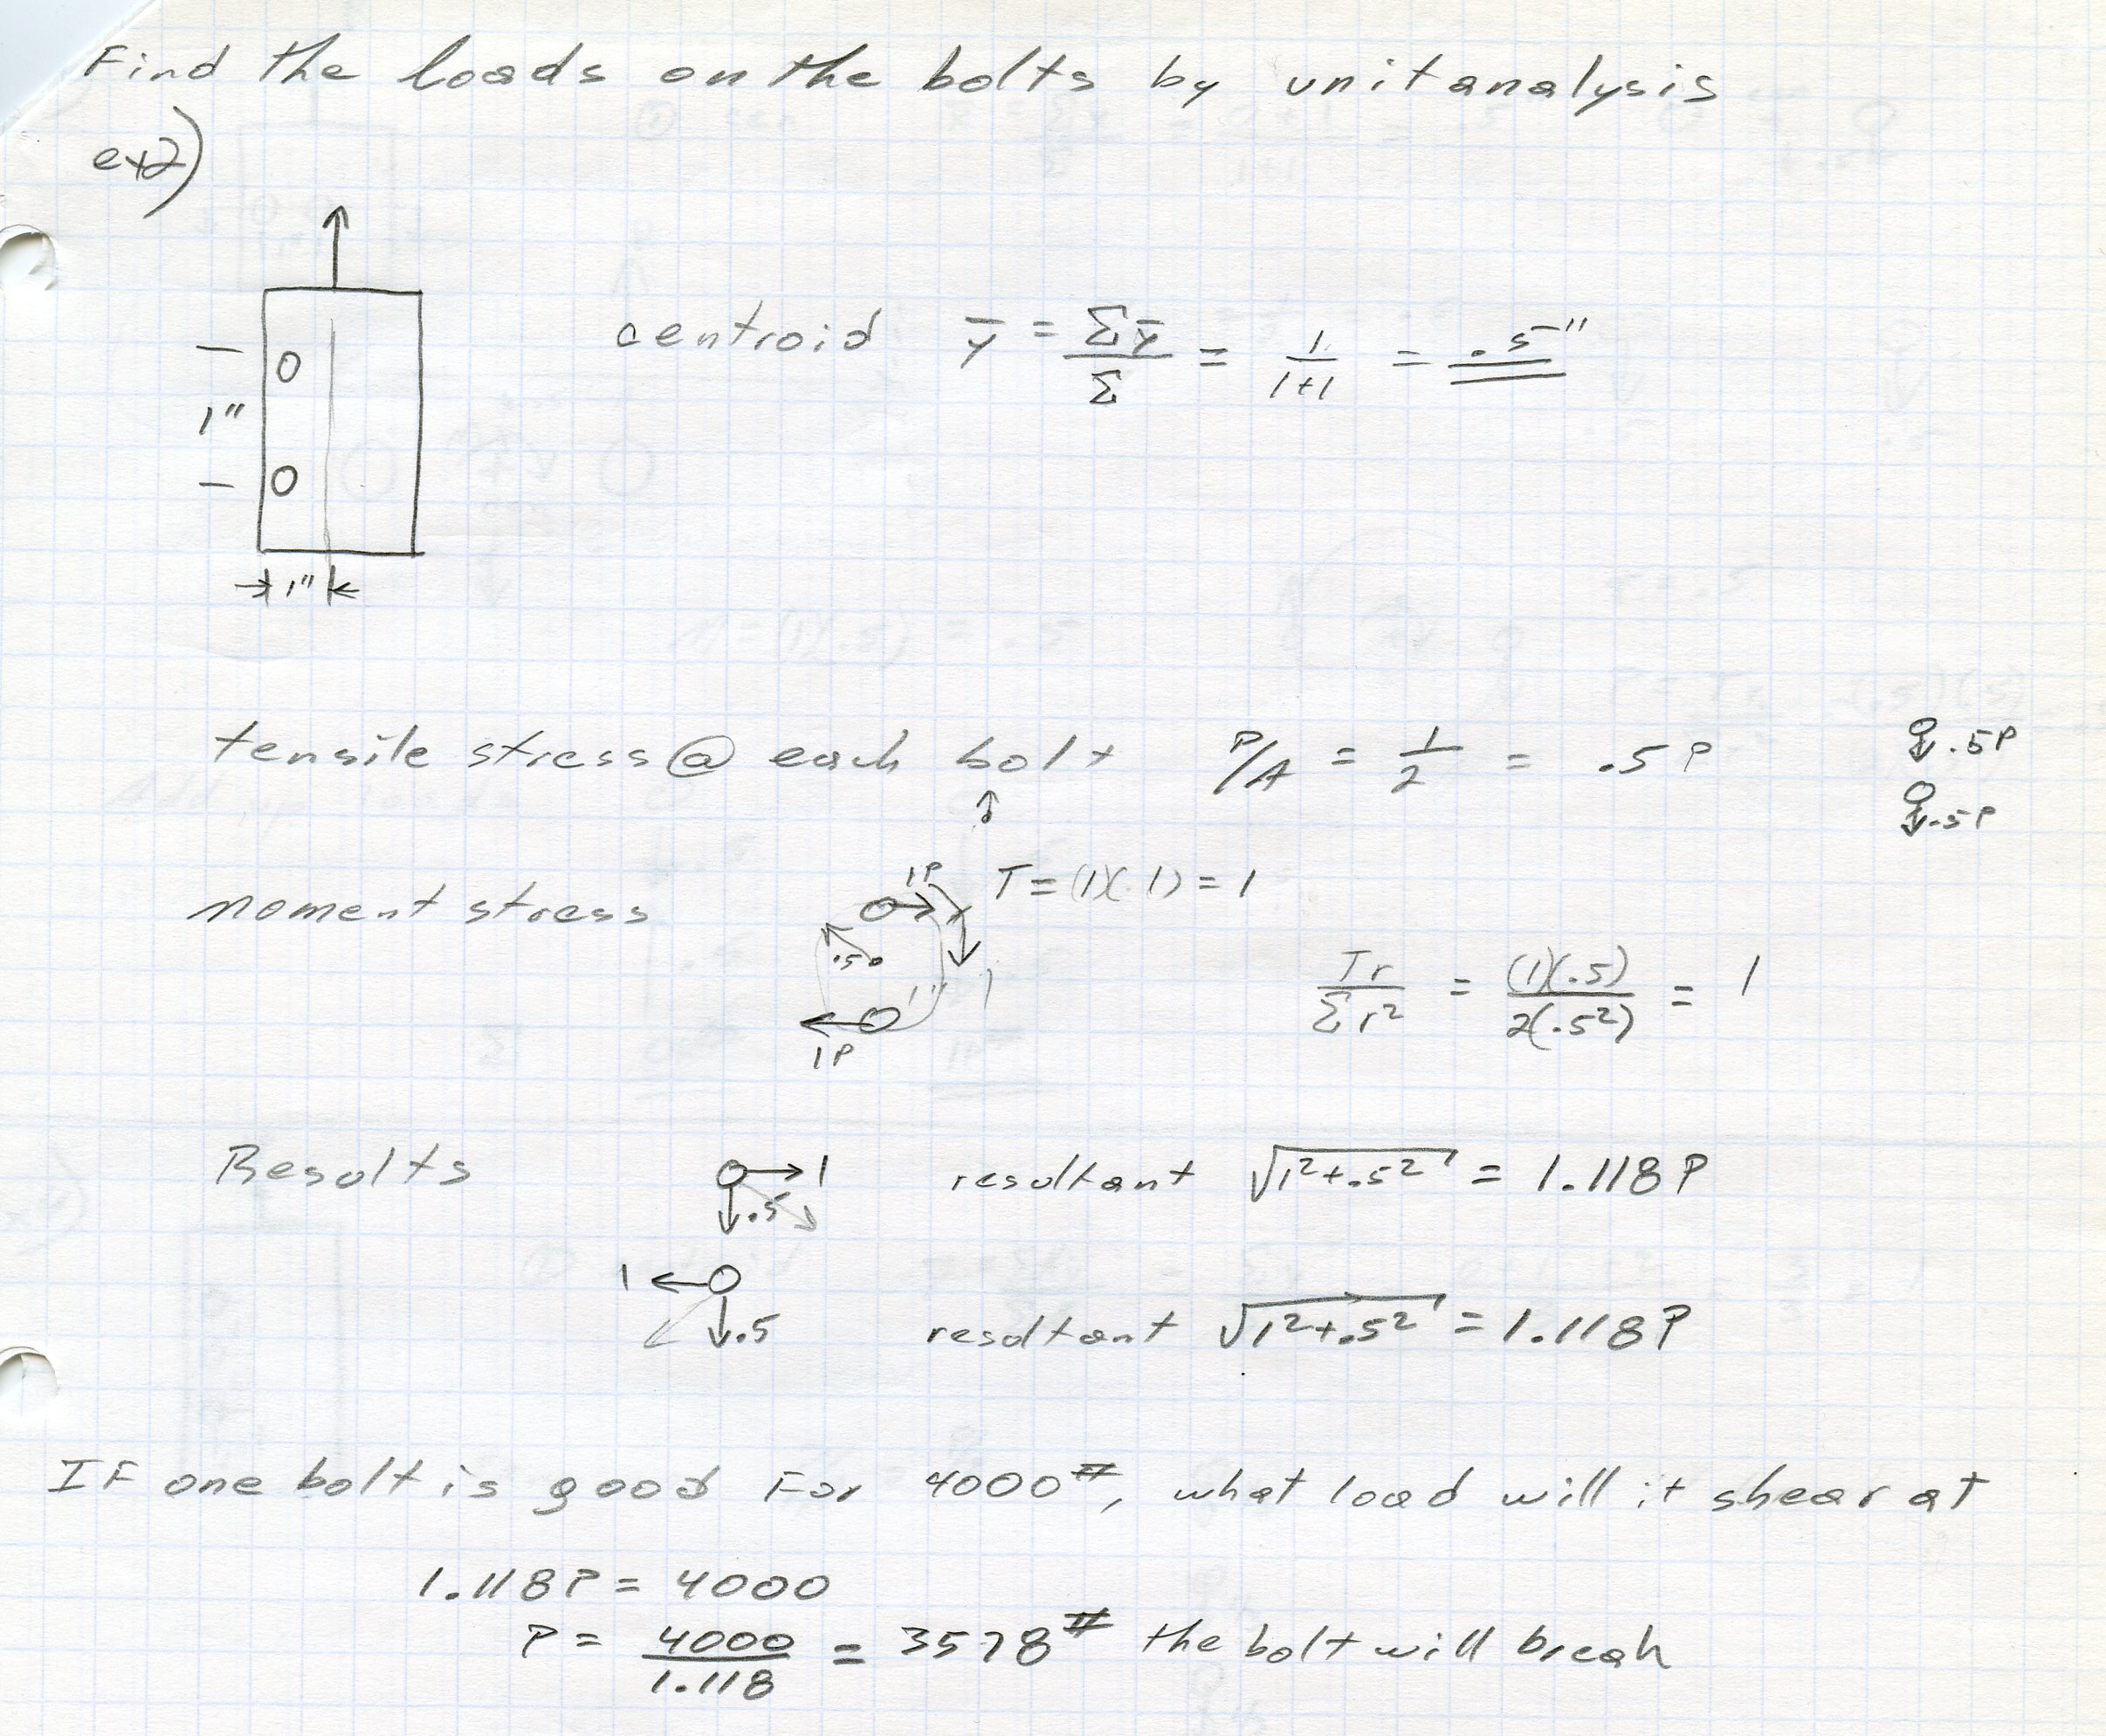 Find the loads on the bolts by unit analysis
ex2)
centroid ȳ = Σȳ/Σ = 1/(1+1) = .5"
1"
1"
tensile stress @ each bolt P/A = 1/2 = .5P
.5P
.5P
moment stress
1P
T = (1)(1) = 1
.5
1"
1
1P
Tr/Σr² = (1)(.5)/2(.5²) = 1
Results
1
.5
resultant √1²+.5² = 1.118P
1
.5
resultant √1²+.5² = 1.118P
IF one bolt is good For 4000#, what load will it shear at
1.118P = 4000
P = 4000/1.118 = 3578# the bolt will break